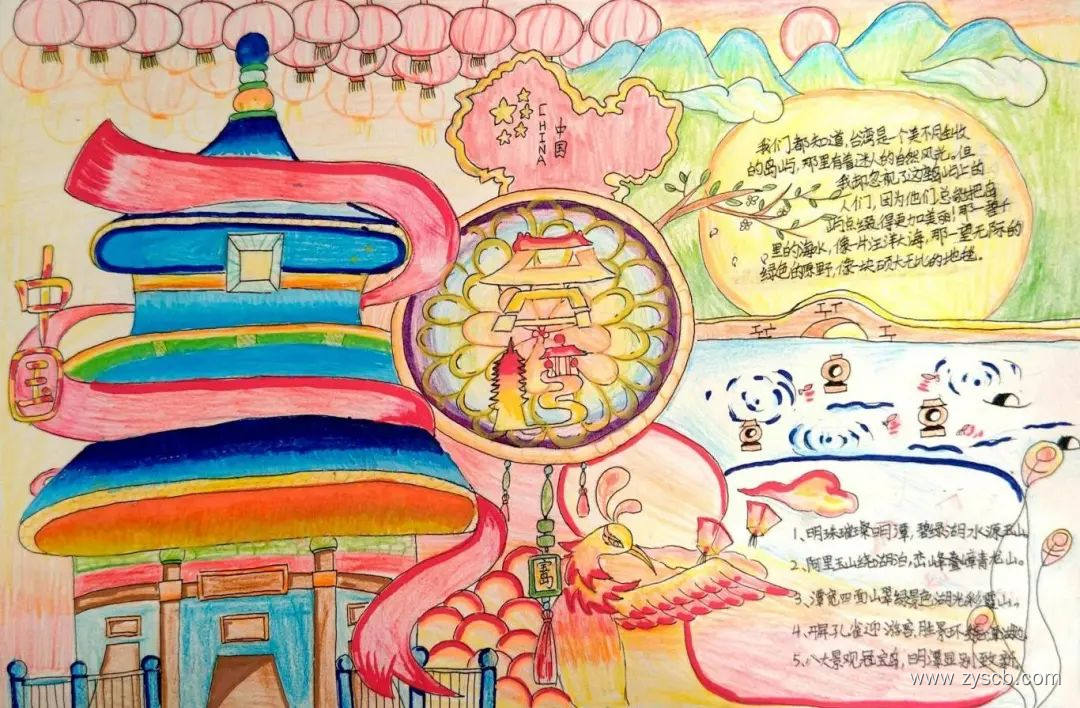 CHINA
中国
我们都知道,台湾是一个美不胜收
的岛屿,那里有着迷人的自然风光。但
我却忽视了这座岛屿上的
人们,因为他们总能把岛
屿点缀得更加美丽!那一碧千
里的海水,像一片汪洋大海,那一望无际的
绿色的原野,像一块硕大无比的地毯。
中
宝
岛
1、明珠璀璨明潭,碧绿湖水源玉山
2、阿里玉山绕湖泊,峦峰叠嶂青龙山。
3、潭宽四面山翠绿景色湖光彩
4、开屏孔雀迎游客,胜景环
5、八大景观冠宝岛,明潭显别致新
www.zyscb.com